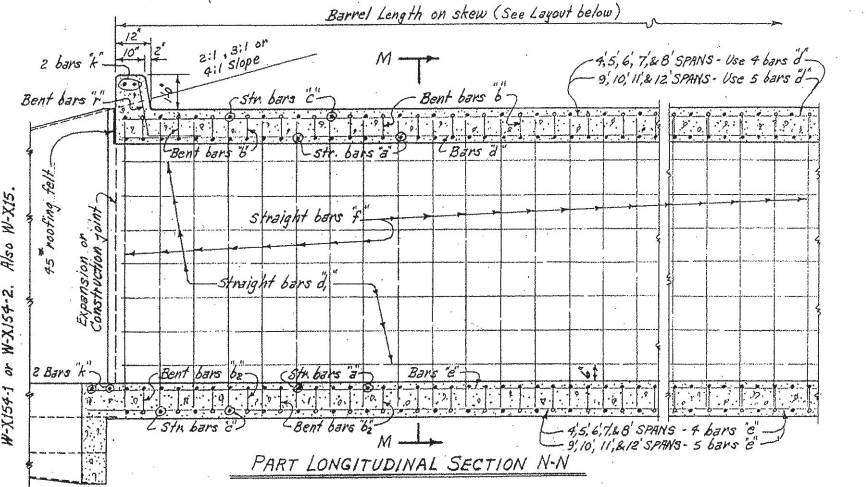 Barrel Length on skew (See Layout below)
12"
10"
2"
2:1, 3:1 or
4:1 Slope
2 bars "k"
M
4', 5', 6', 7', & 8' SPANS - Use 4 bars "d"
9', 10', 11', & 12' SPANS - Use 5 bars "d"
Bent bars "r"
1'-0"
Str. bars "c"
Bent bars "b"
Bent bars "b"
Str. bars "a"
Bars "d"
45# roofing felt
Expansion or
Construction joint
W-X154-1 or W-X154-2. Also W-X15.
straight bars "f"
Straight bars "d₁"
2 Bars "k"
Bent bars "b₂"
Str. bars "a"
Bars "e"
6"
Str. bars "c"
Bent bars "b₂"
4', 5', 6', 7', & 8' SPANS - 4 bars "e"
9', 10', 11', & 12' SPANS - 5 bars "e"
M
PART LONGITUDINAL SECTION N-N